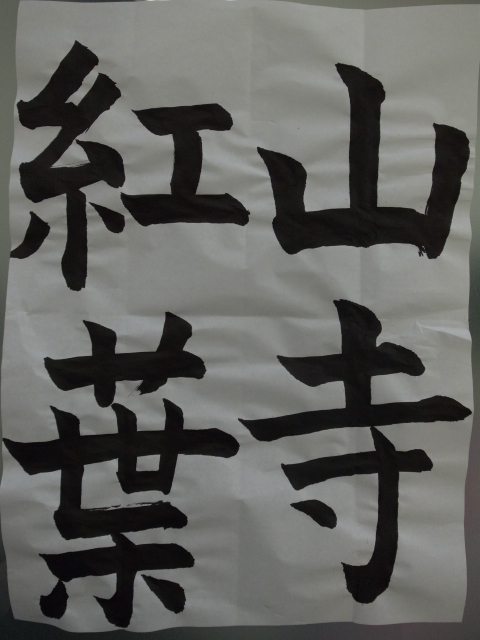 山寺
紅葉